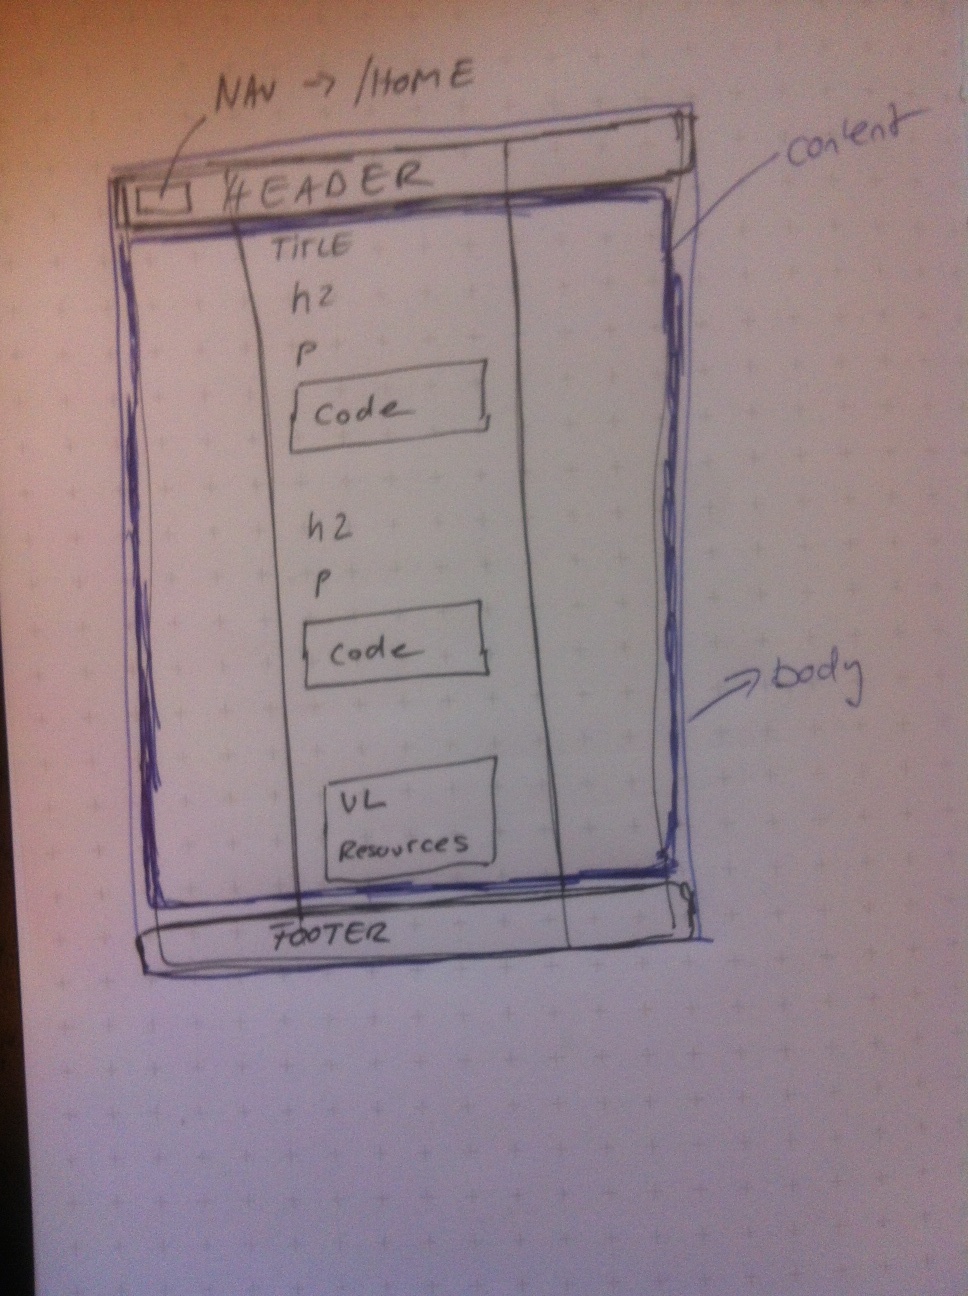 NAV → /HOME
content
HEADER
TITLE
h2
P
Code
h2
P
Code
body
UL
Resources
FOOTER